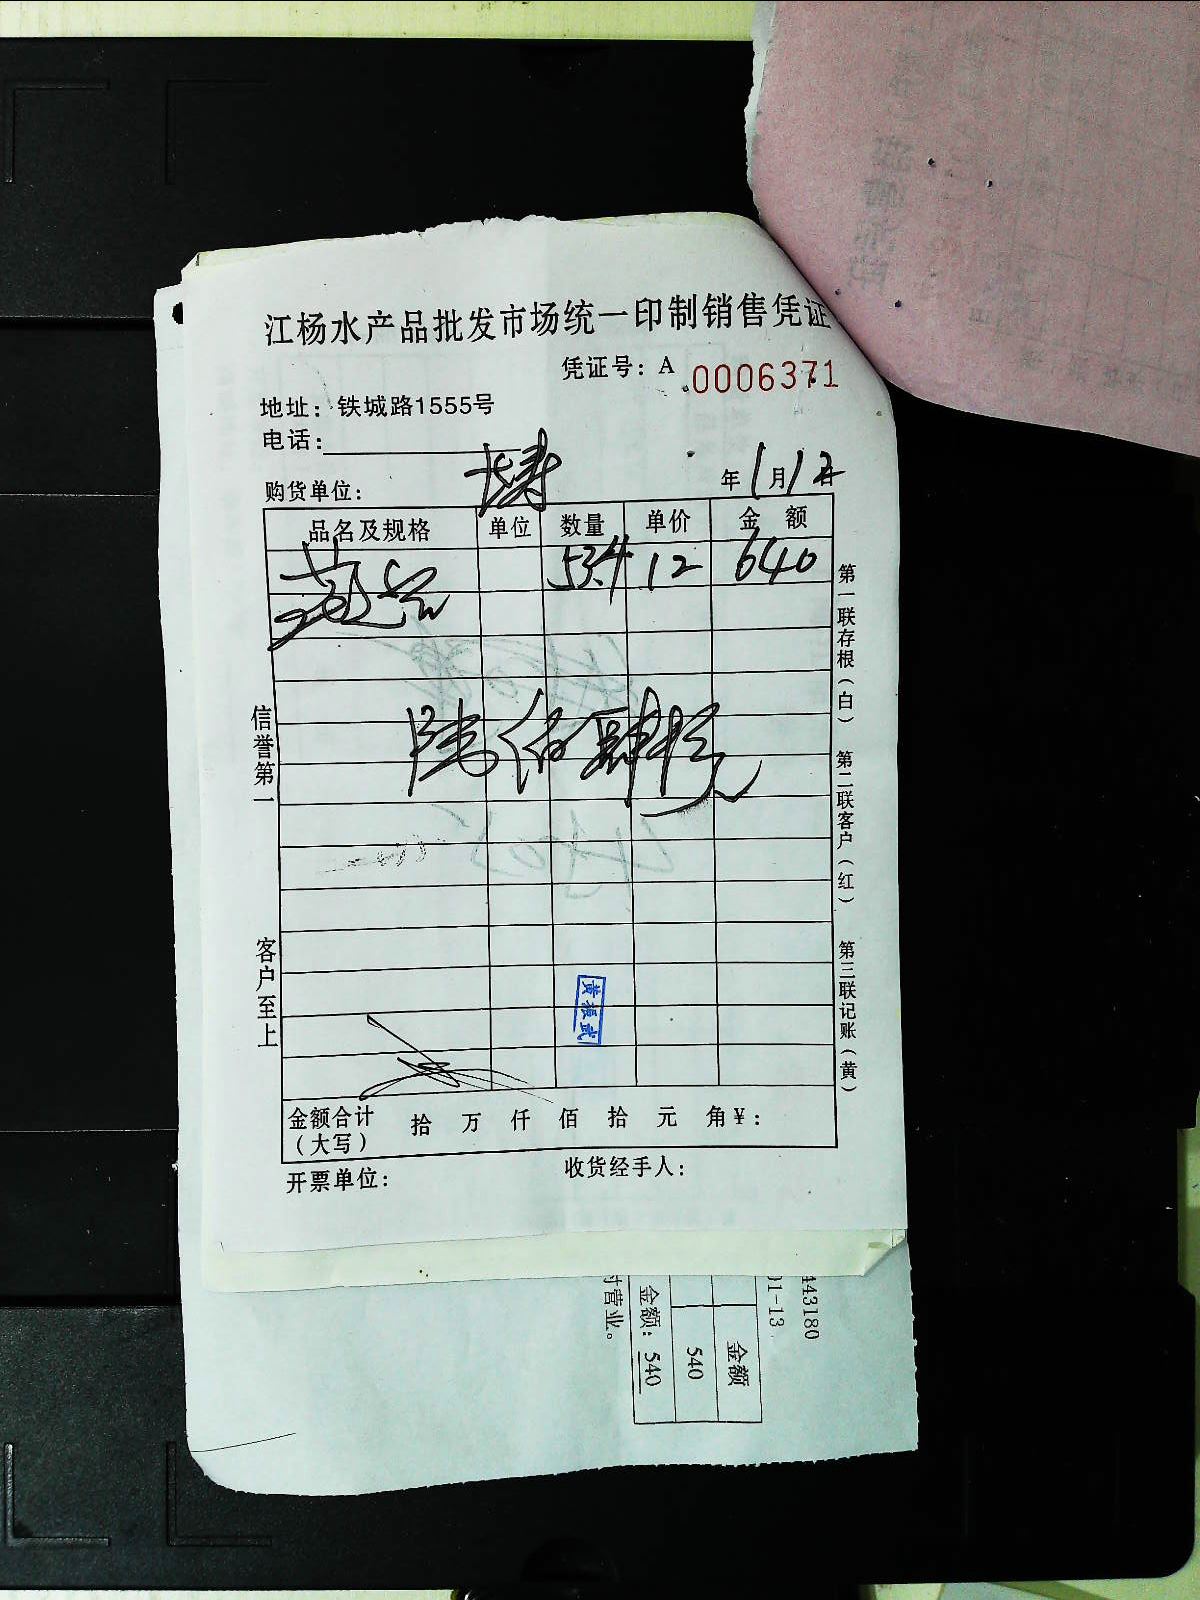 江杨水产品批发市场统一印制销售凭证
凭证号：A 0006371
地址：铁城路1555号
电话：
购货单位： 年1月12日
品名及规格 单位 数量 单价 金额
53.4 12 640
陆佰肆拾元
信誉第一
客户至上
第一联存根（白）
第二联客户（红）
第三联记账（黄）
黄振武
金额合计（大写） 拾 万 仟 佰 拾 元 角¥：
开票单位： 收货经手人：
443180
01-13
金额
540
金额：540
时营业。